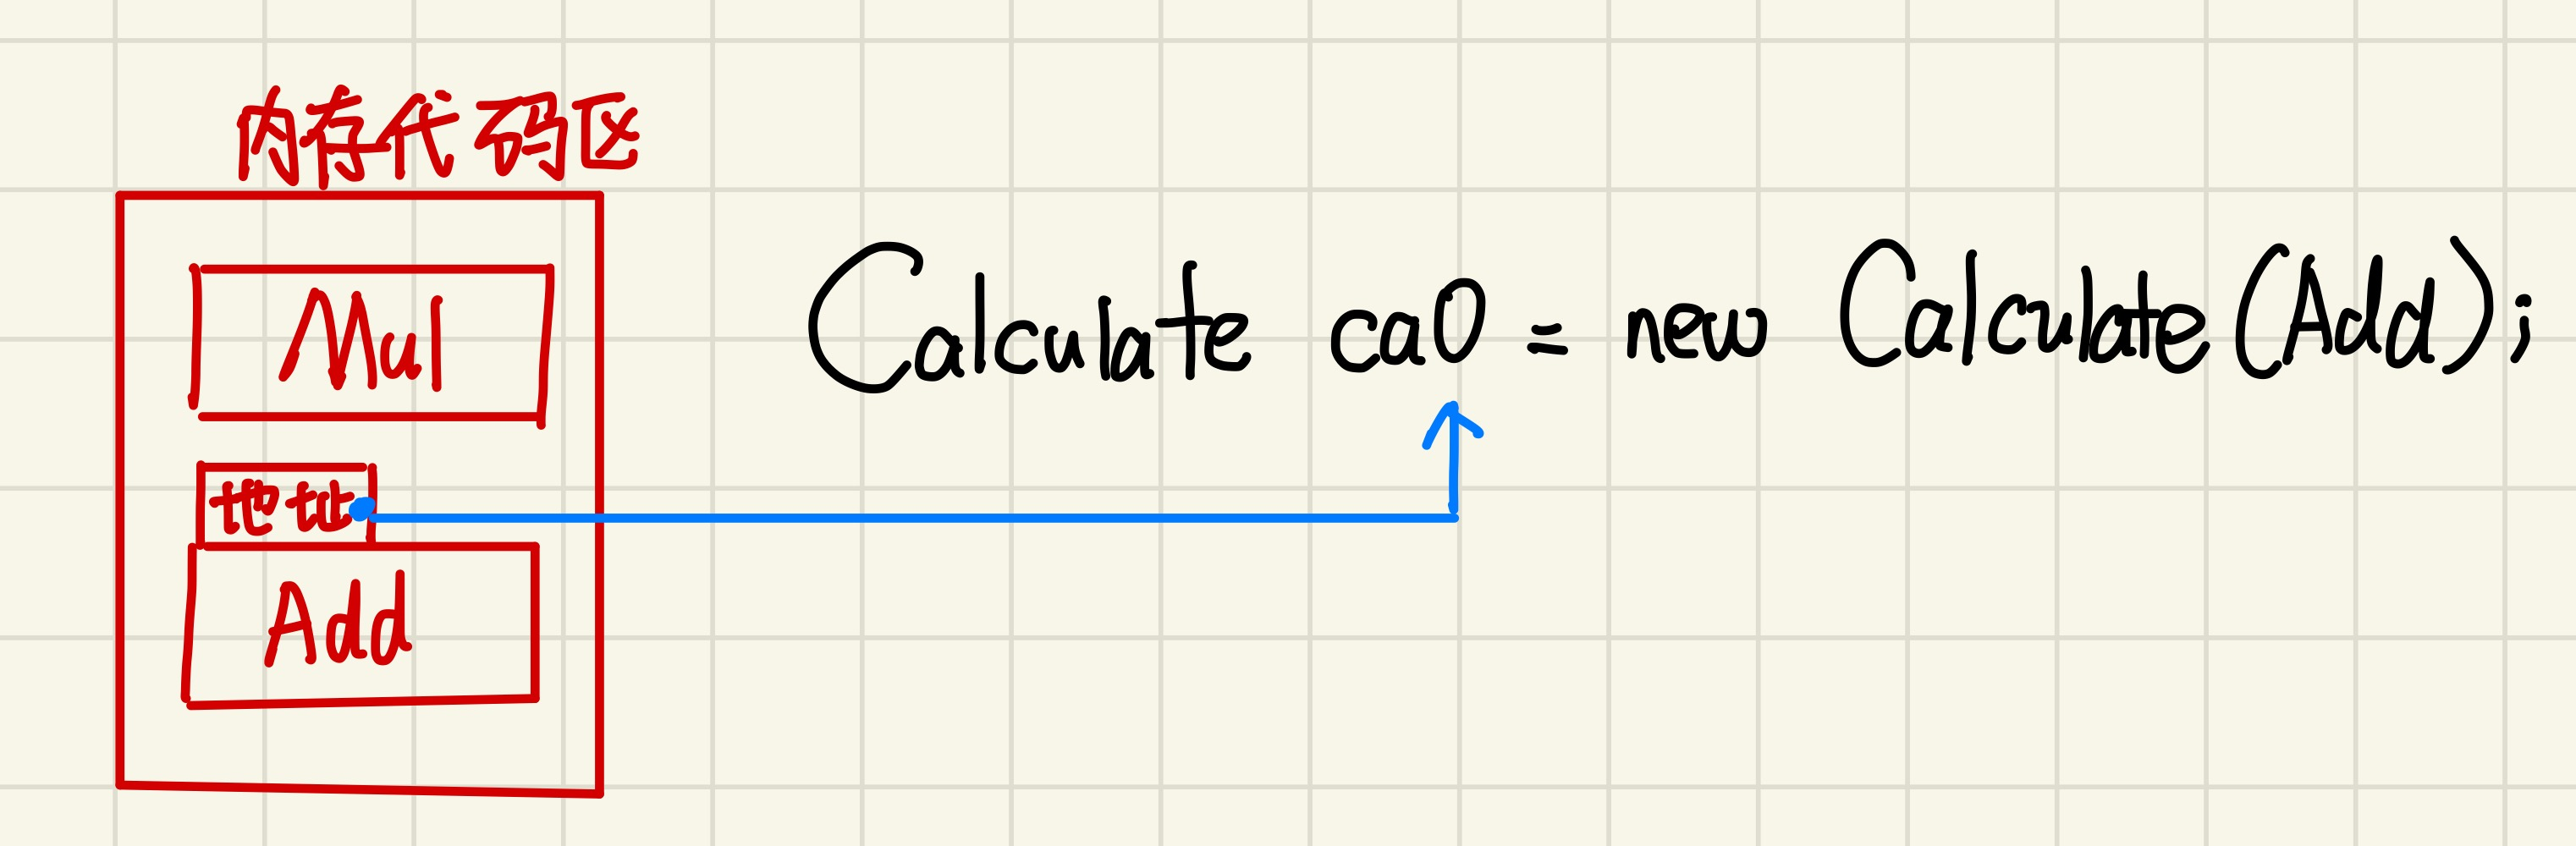 内存代码区
Mul
地址
Add
Calculate ca0 = new Calculate(Add);